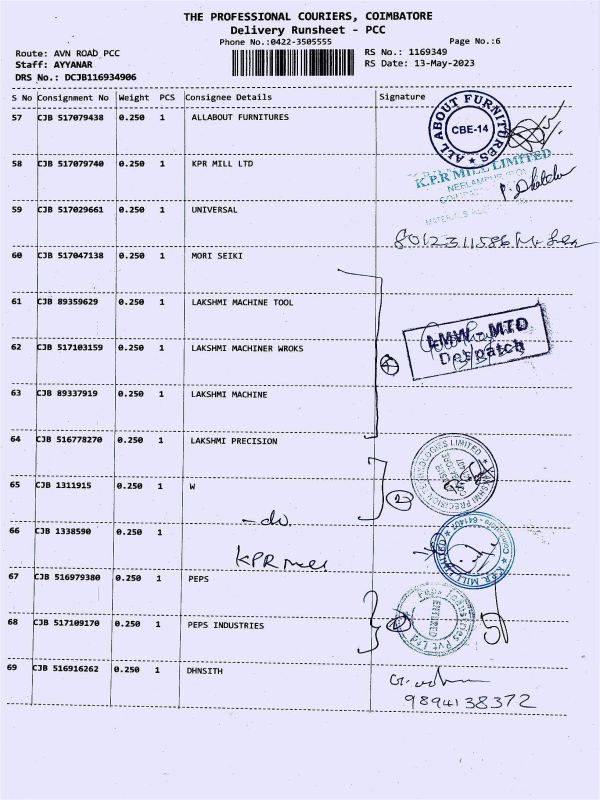 THE PROFESSIONAL COURIERS, COIMBATORE
Delivery Runsheet - PCC
Phone No.:0422-3505555
Page No.:6
Route: AVN ROAD PCC
RS No.: 1169349
Staff: AYYANAR
RS Date: 13-May-2023
DRS No.: DCJB116934906
S No Consignment No Weight PCS Consignee Details Signature
57 CJB 517079438 0.250 1 ALLABOUT FURNITURES
ALL ABOUT FURNITURES
CBE-14
58 CJB 517079740 0.250 1 KPR MILL LTD
K.P.R MILL LIMITED
59 CJB 517029661 0.250 1 UNIVERSAL
8012311586
60 CJB 517047138 0.250 1 MORI SEIKI
61 CJB 89359629 0.250 1 LAKSHMI MACHINE TOOL
62 CJB 517103159 0.250 1 LAKSHMI MACHINER WROKS
LMW - MTD
Despatch
63 CJB 89337919 0.250 1 LAKSHMI MACHINE
64 CJB 516778270 0.250 1 LAKSHMI PRECISION
65 CJB 1311915 0.250 1 W
2
66 CJB 1338590 0.250 1
-do.
KPR mill
K.P.R. MILL LIMITED
67 CJB 516979380 0.250 1 PEPS
68 CJB 517109170 0.250 1 PEPS INDUSTRIES
Peps Industries Pvt Ltd
69 CJB 516916262 0.250 1 DHNSITH
9894138372